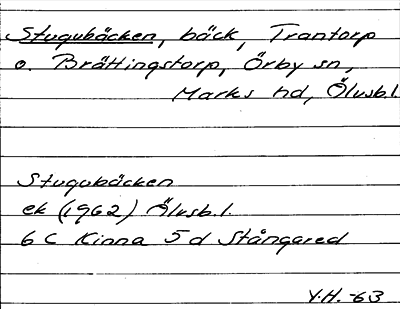 Stugubäcken, bäck, Trantorp
o. Brättingstorp, Örby sn,
Marks hd, Älvsb.l.
Stugubäcken
ek (1962) Älvsb.l.
6 C Kinna 5 d Stångared
Y.H. -63